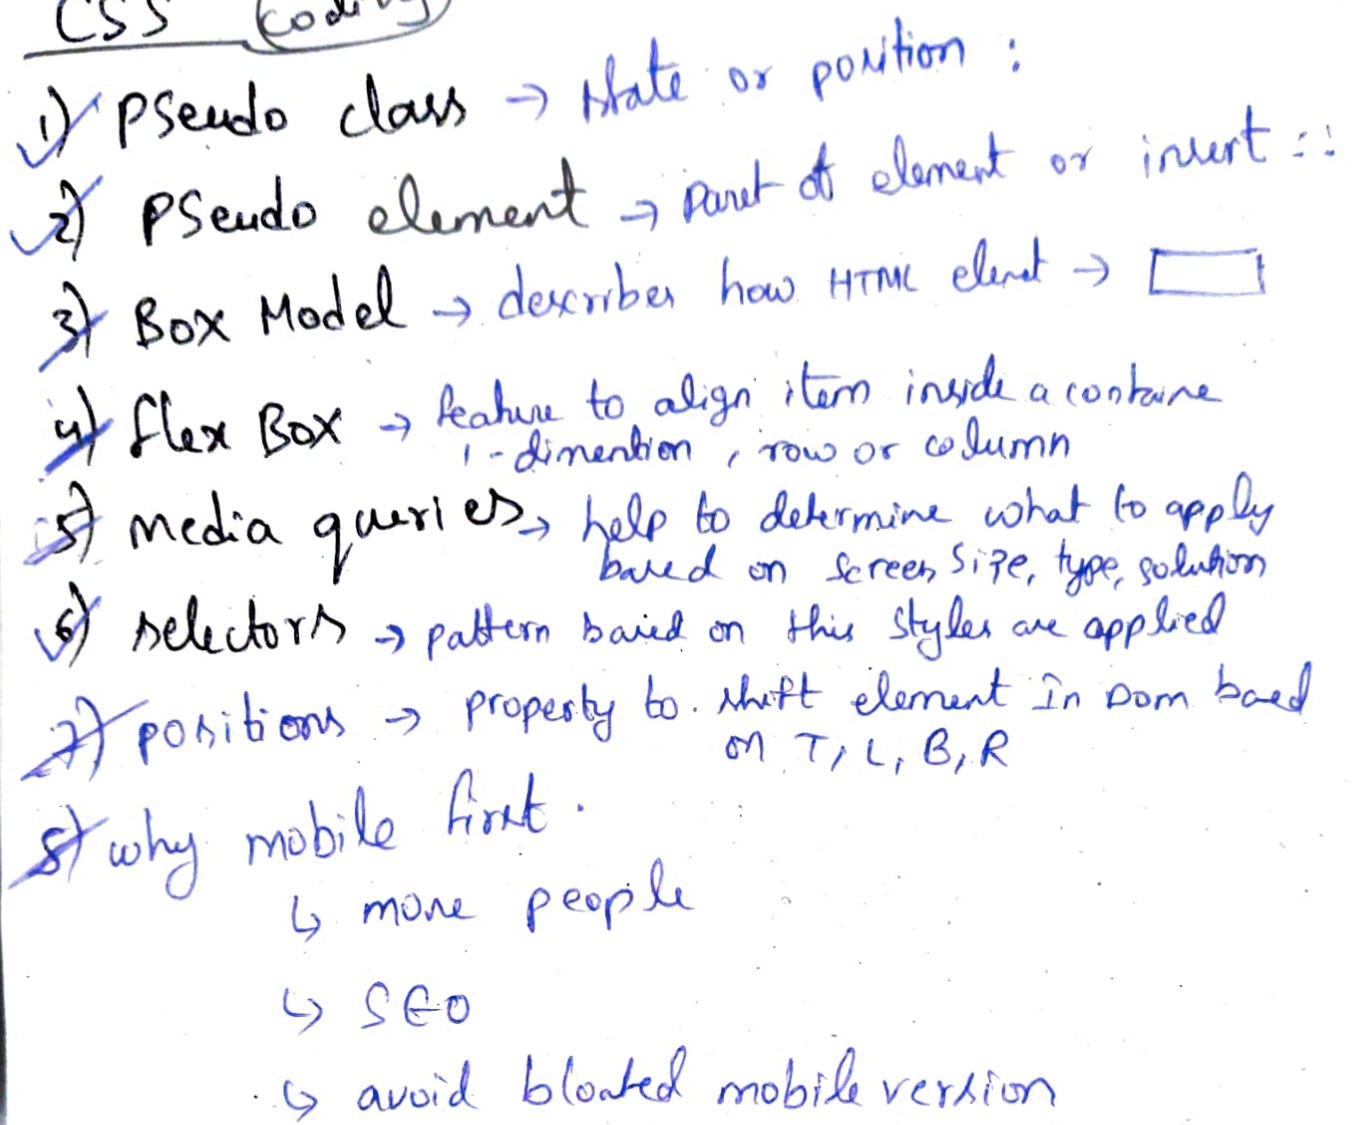 CSS coding
1) Pseudo class → state or position :
2) Pseudo element → Paret of element or insert ::
3) Box Model → describes how HTML elemet →
4) flex Box → feature to align item inside a containe
1-dimention, row or column
5) media queries → help to determine what to apply
based on screen size, type, solution
6) selectors → pattern based on this styles are applied
7) positions → property to shift element In Dom based
on T, L, B, R
8) why mobile first.
↳ more people
↳ SEO
↳ avoid bloated mobile version